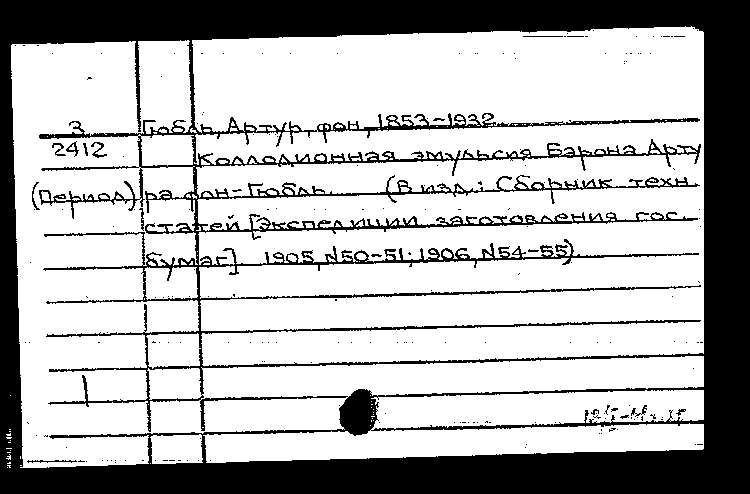 3 Гюбль, Артур, фон, 1853-1932.
2412 Коллодионная эмульсия Барона Арту
(Период) ра фон-Гюбль. (В изд.: Сборник техн.
статей [Экспедиции заготовления гос.
бумаг]. 1905, №50-51; 1906, №54-55).
1